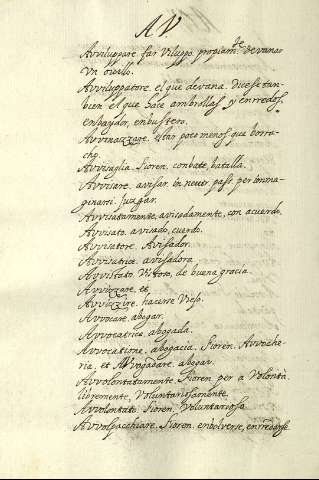 AV
Avviluppare. far Viluppo. propiam.te devanar
Un ovillo.
Avviluppatore. el que devana. dicese tan-
bien el que hace ambrollas, y enrredos,
enbaydor, enbustero.
Avvinazzare. estar poco menos que borra-
cho.
Avvisaglia. Fioren. conbate, batalla.
Avvisare. avisar. in neutr. pass. per imma-
ginarsi. juzgar.
Avvisatamente, avisadamente, con acuerdo.
Avvisato. avisado, cuerdo.
Avvisatore. Avisador.
Avvisatrice. avisadora.
Avvistato. Vistoso, de buena gracia.
Avvizzare. et,
Avvizzire. hacerse Viejo.
Avvocare. abogar.
Avvocatrice. abogada.
Avvocatione. abogacia. Fioren. Avvoche-
ria, et abogar.
Avvolontatamente. Fioren. per a Volontà.
libremente, Voluntariosamente.
Avvolontato. Fioren. Voluntarioso
Avvolpacchiare. Fioren. enbolverse, enrredarse.